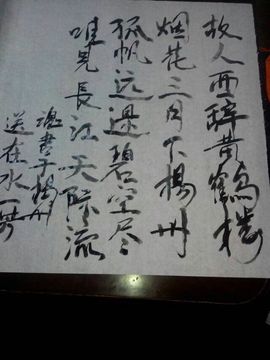 故人西辞黄鹤楼
烟花三月下楊州
孤帆远逥碧空尽
唯見長江天际流
逸書于楊州
送在水一方